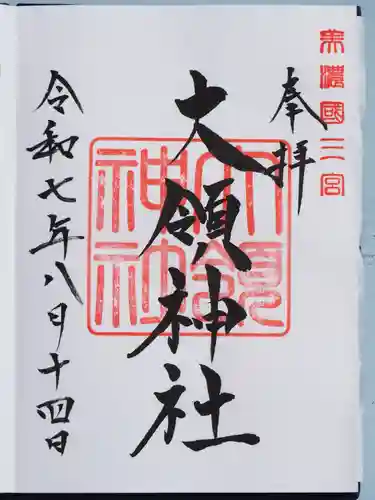 美濃國三宮
奉拝
大領神社
大領神社
令和七年八月十四日